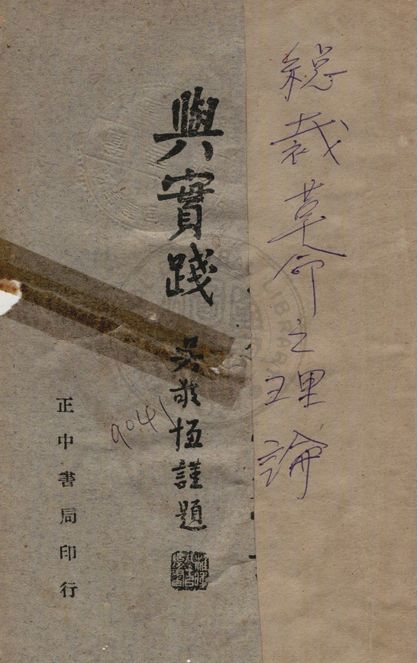 總裁革命之理論
與實踐
吳敬恆謹題
9041
正中書局印行